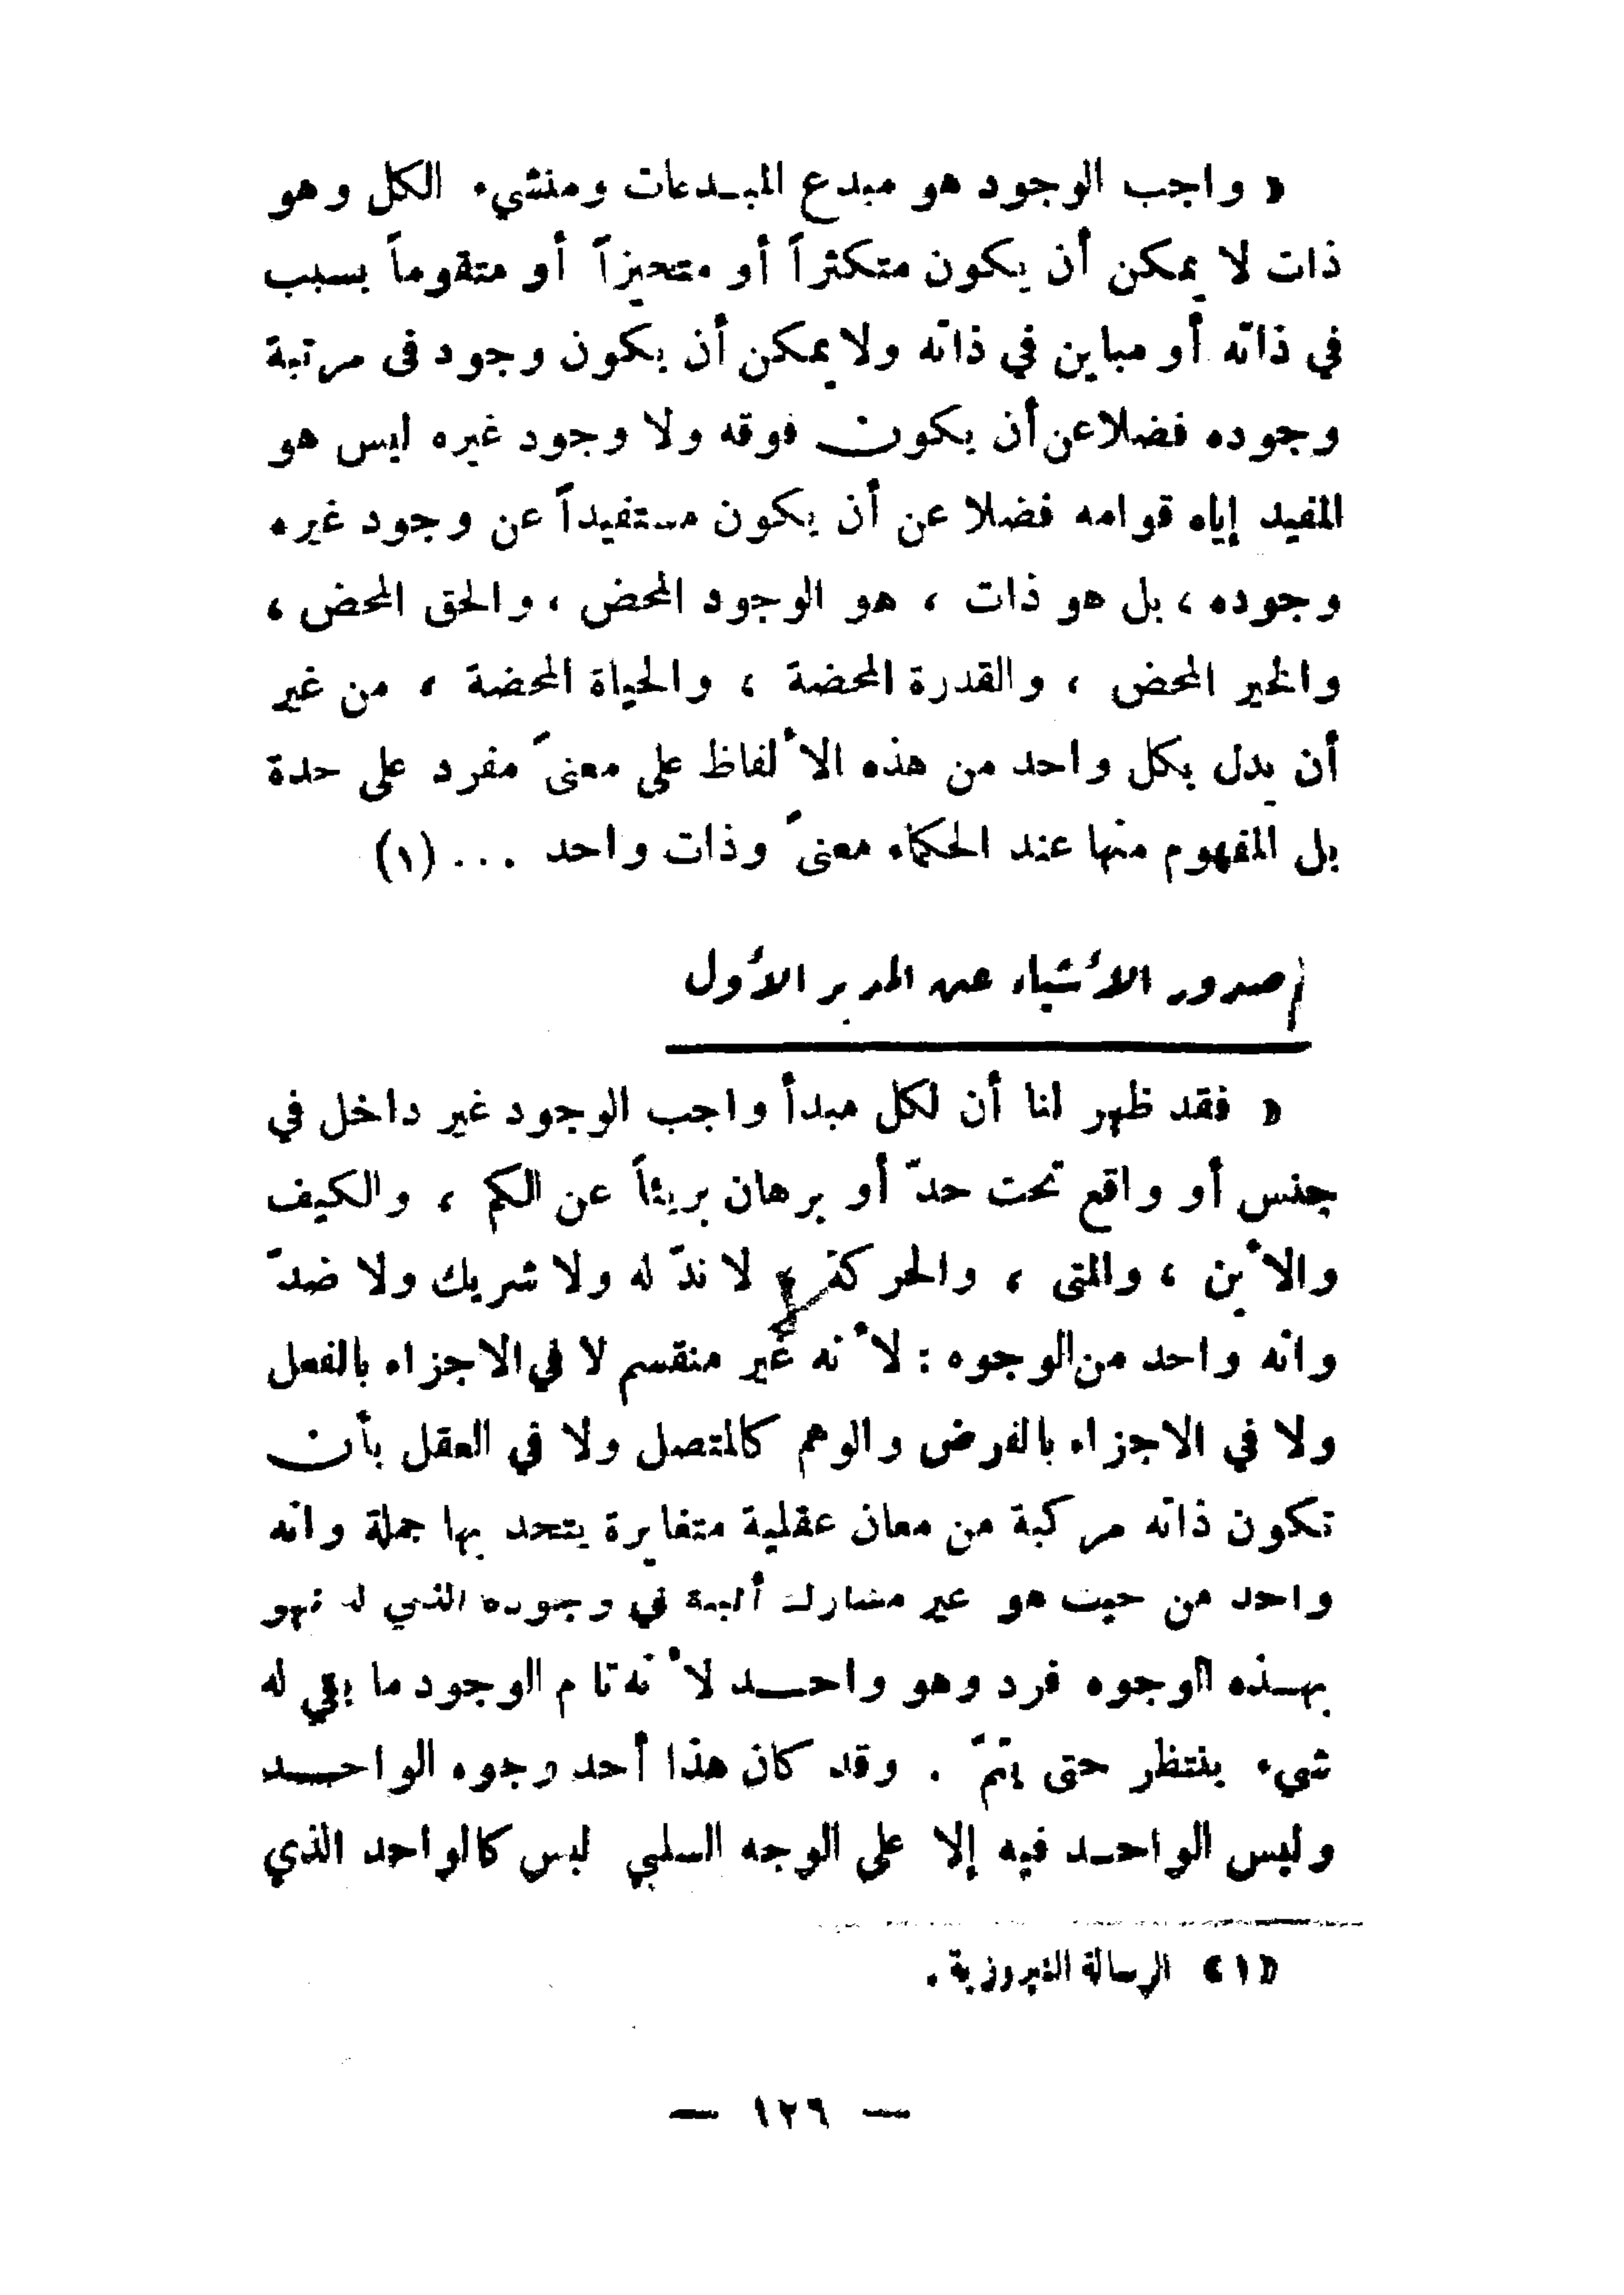 « واجب الوجود هو مبدع المبدعات ومنشيء الكل وهو
ذات لا يمكن أن يكون متكثراً أو متحيزاً أو متقوماً بسبب
في ذاته أو مباين في ذاته ولا يمكن أن يكون وجود في مرتبة
وجوده فضلا عن أن يكون فوقه ولا وجود غيره ليس هو
المفيد إياه قوامه فضلا عن أن يكون مستفيداً عن وجود غيره
وجوده ، بل هو ذات ، هو الوجود المحض ، والحق المحض ،
والخير المحض ، والقدرة المحضة ، والحياة المحضة ، من غير
أن يدل بكل واحد من هذه الألفاظ على معنىً مفرد على حدة
بل المفهوم منها عند الحكماء معنىً وذات واحد ... (١)
صدور الأشياء عن المدبر الأول
« فقد ظهر لنا أن لكل مبدأ واجب الوجود غير داخل في
جنس أو واقع تحت حدّ أو برهان بريئاً عن الكم ، والكيف
والأين ، والمتى ، والحركة ، لا ندّ له ولا شريك ولا ضدّ
وانه واحد من الوجوه : لأنه غير منقسم لا في الاجزاء بالفعل
ولا في الاجزاء بالفرض والوهم كالمتصل ولا في العقل بأن
تكون ذاته مركبة من معان عقلية متغايرة يتحد بها جملة وانه
واحد من حيث هو غير مشارك ألبتة في وجوده الذي له فهو
بهذه الوجوه فرد وهو واحد لأنه تام الوجود ما بقي له
شيء ينتظر حتى يتمّ . وقد كان هذا أحد وجوه الواحد
وليس الواحد فيه إلا على الوجه السلبي ليس كالواحد الذي
«١» الرسالة النيروزية .
— ١٢٦ —